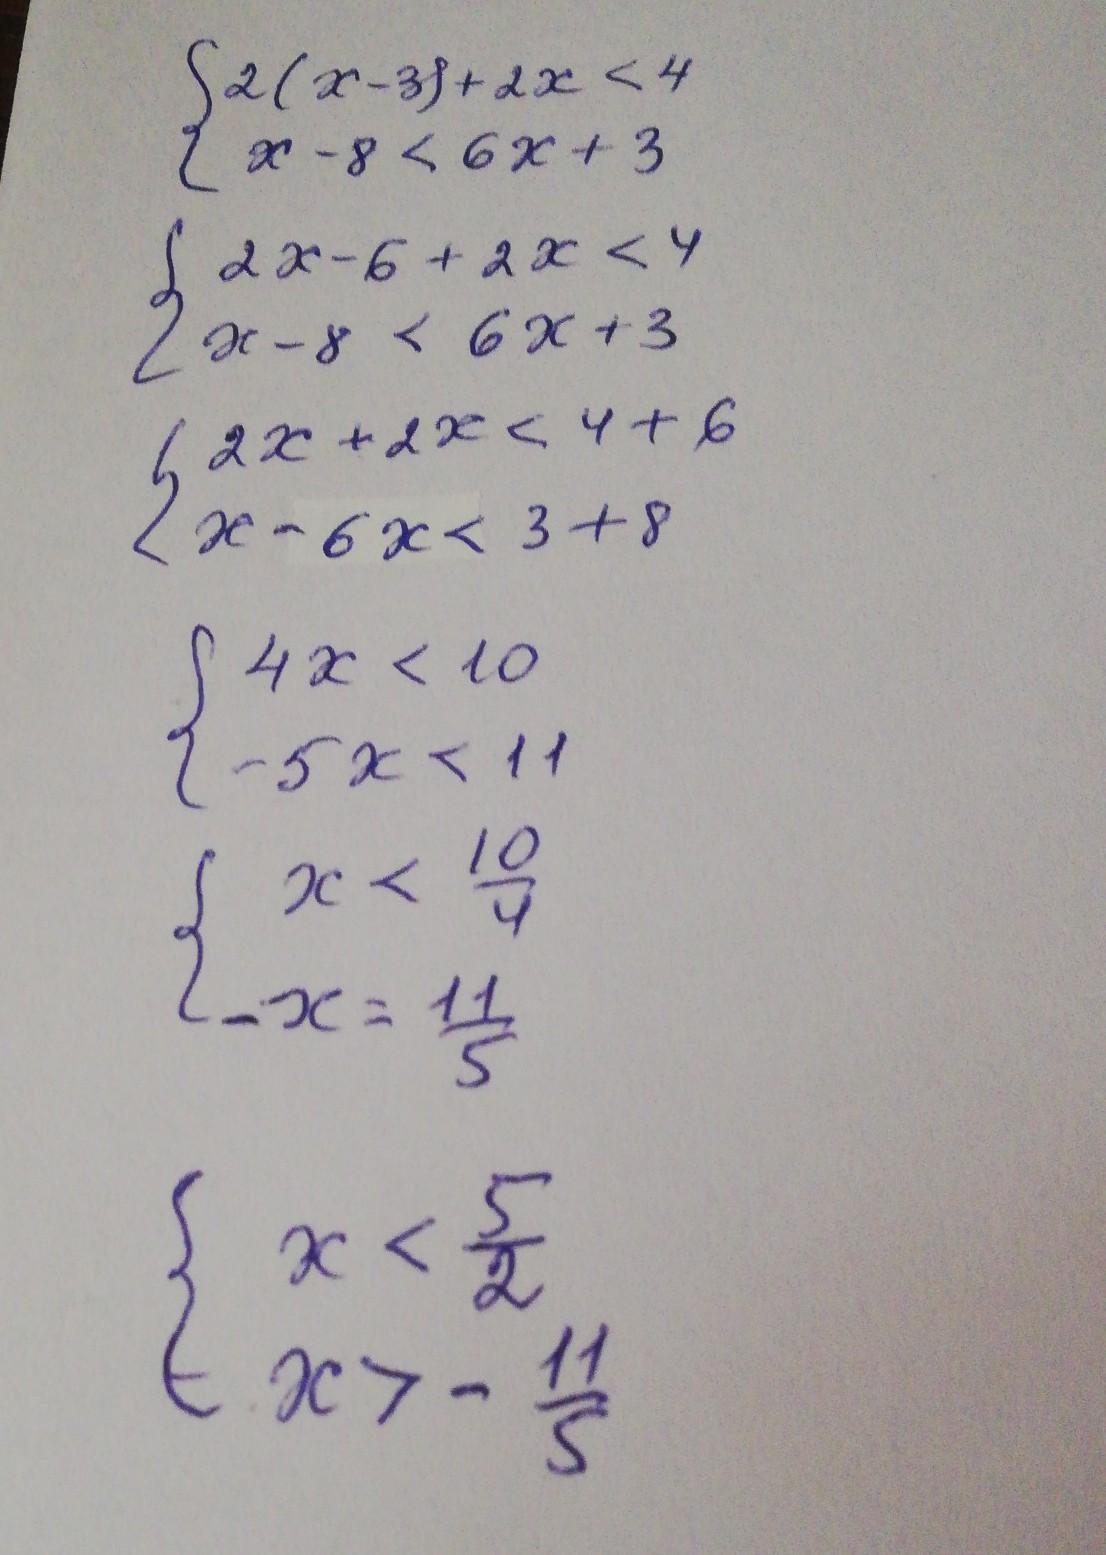 2(x-3)+2x<4
x-8<6x+3
2x-6+2x<4
x-8<6x+3
2x+2x<4+6
x-6x<3+8
4x<10
-5x<11
x<10/4
-x=11/5
x<5/2
x>-11/5